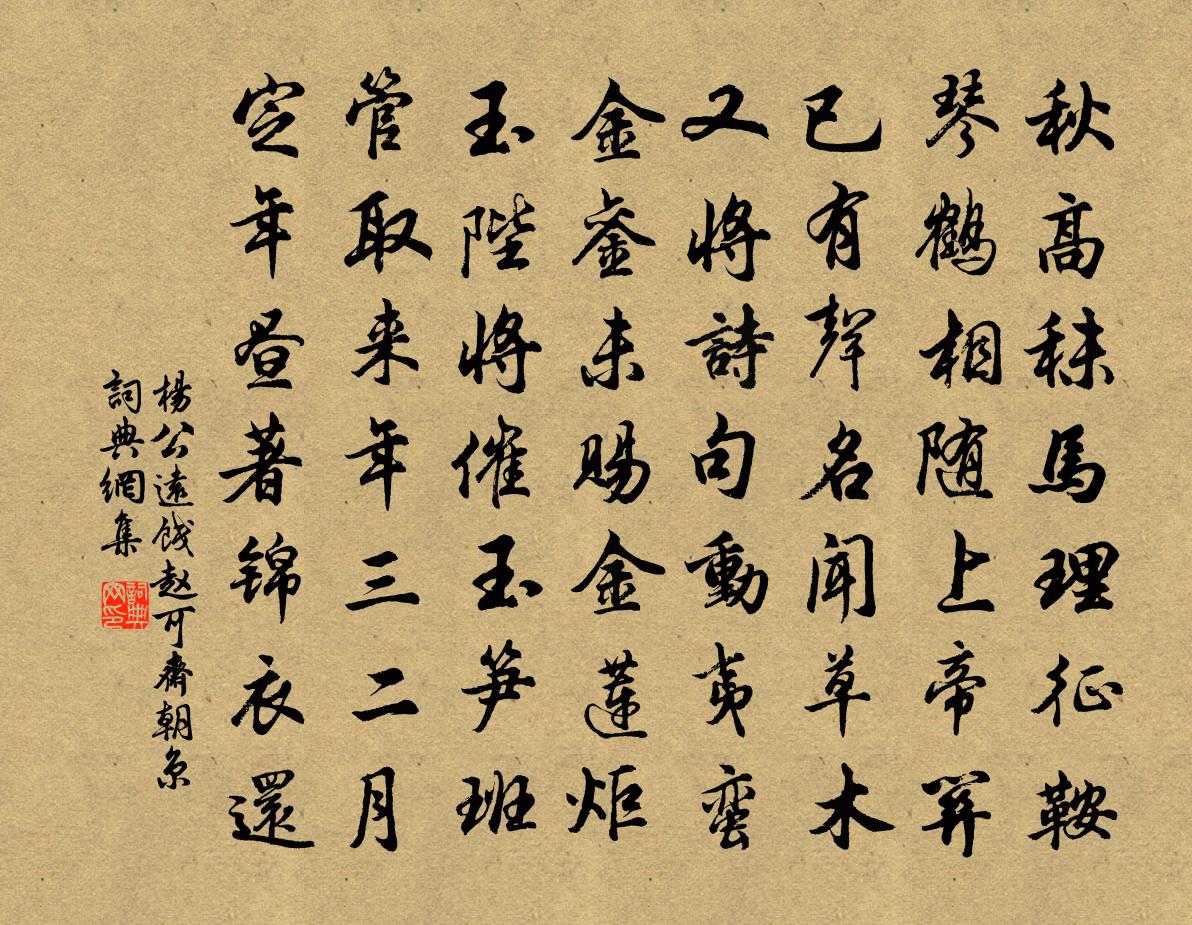 秋高秣馬理征鞍
琴鶴相随上帝關
已有聲名聞草木
又將詩句動夷蛮
金銮未賜金蓮炬
玉陛將催玉笋班
管取来年三二月
定年昼著锦衣還
楊公遠餞赵可齋朝京
詞典網集
詞典网印